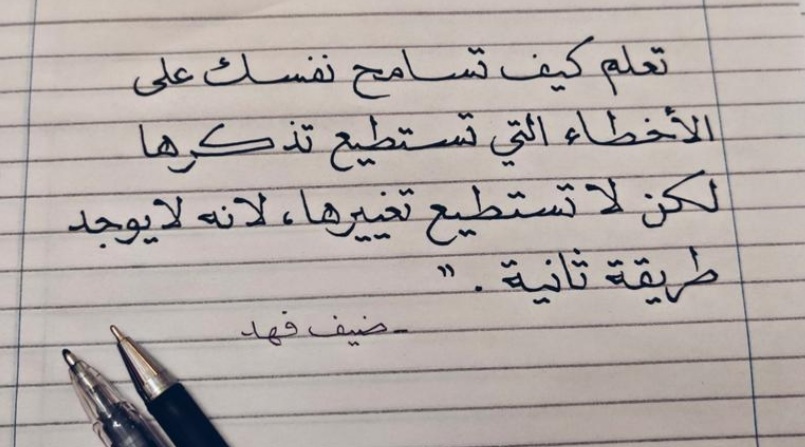 تعلم كيف تسامح نفسك على
الأخطاء التي تستطيع تذكرها
لكن لا تستطيع تغييرها، لانه لا يوجد
طريقة ثانية . "
- ضيف فهد